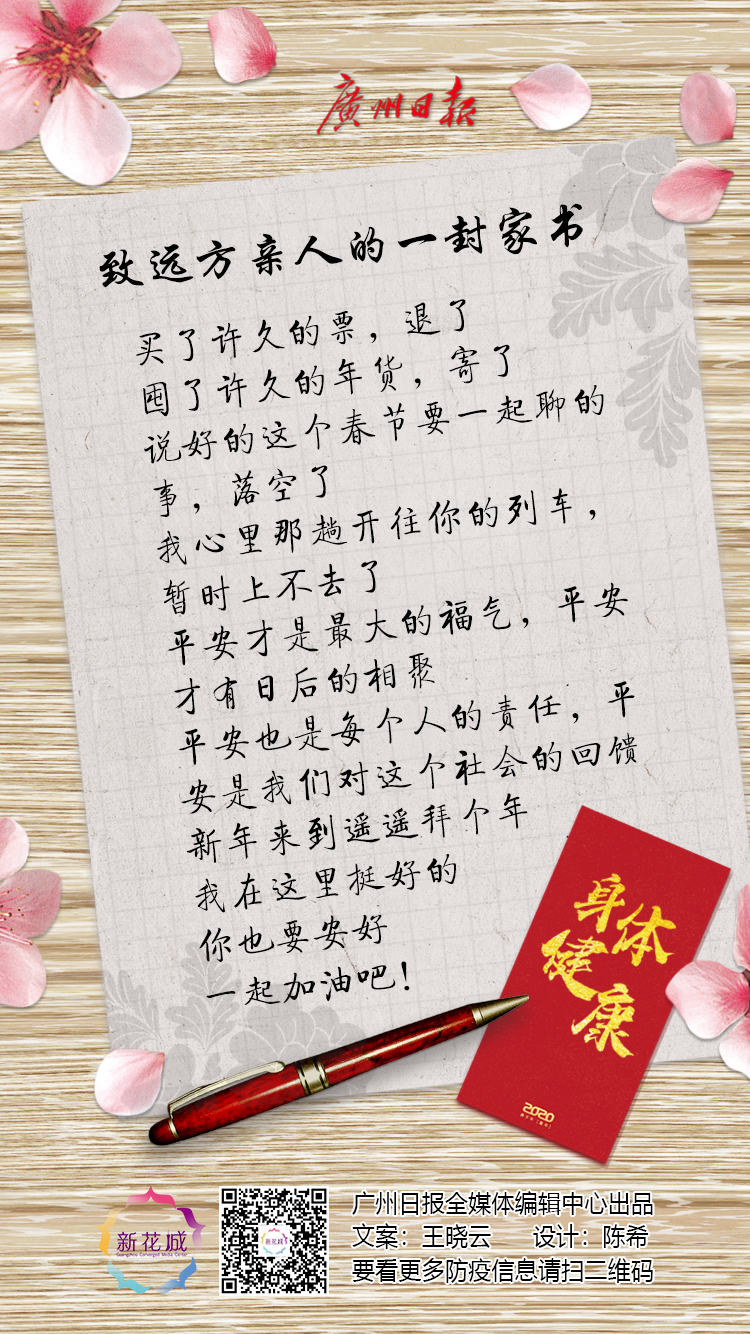 廣州日报
致远方亲人的一封家书
买了许久的票，退了
囤了许久的年货，寄了
说好的这个春节要一起聊的
事，落空了
我心里那趟开往你的列车，
暂时上不去了
平安才是最大的福气，平安
才有日后的相聚
平安也是每个人的责任，平
安是我们对这个社会的回馈
新年来到遥遥拜个年
我在这里挺好的
你也要安好
一起加油吧！
身体
健康
2020
新花城
Guangzhou Converged Media Center
广州日报全媒体编辑中心出品
文案：王晓云 设计：陈希
要看更多防疫信息请扫二维码